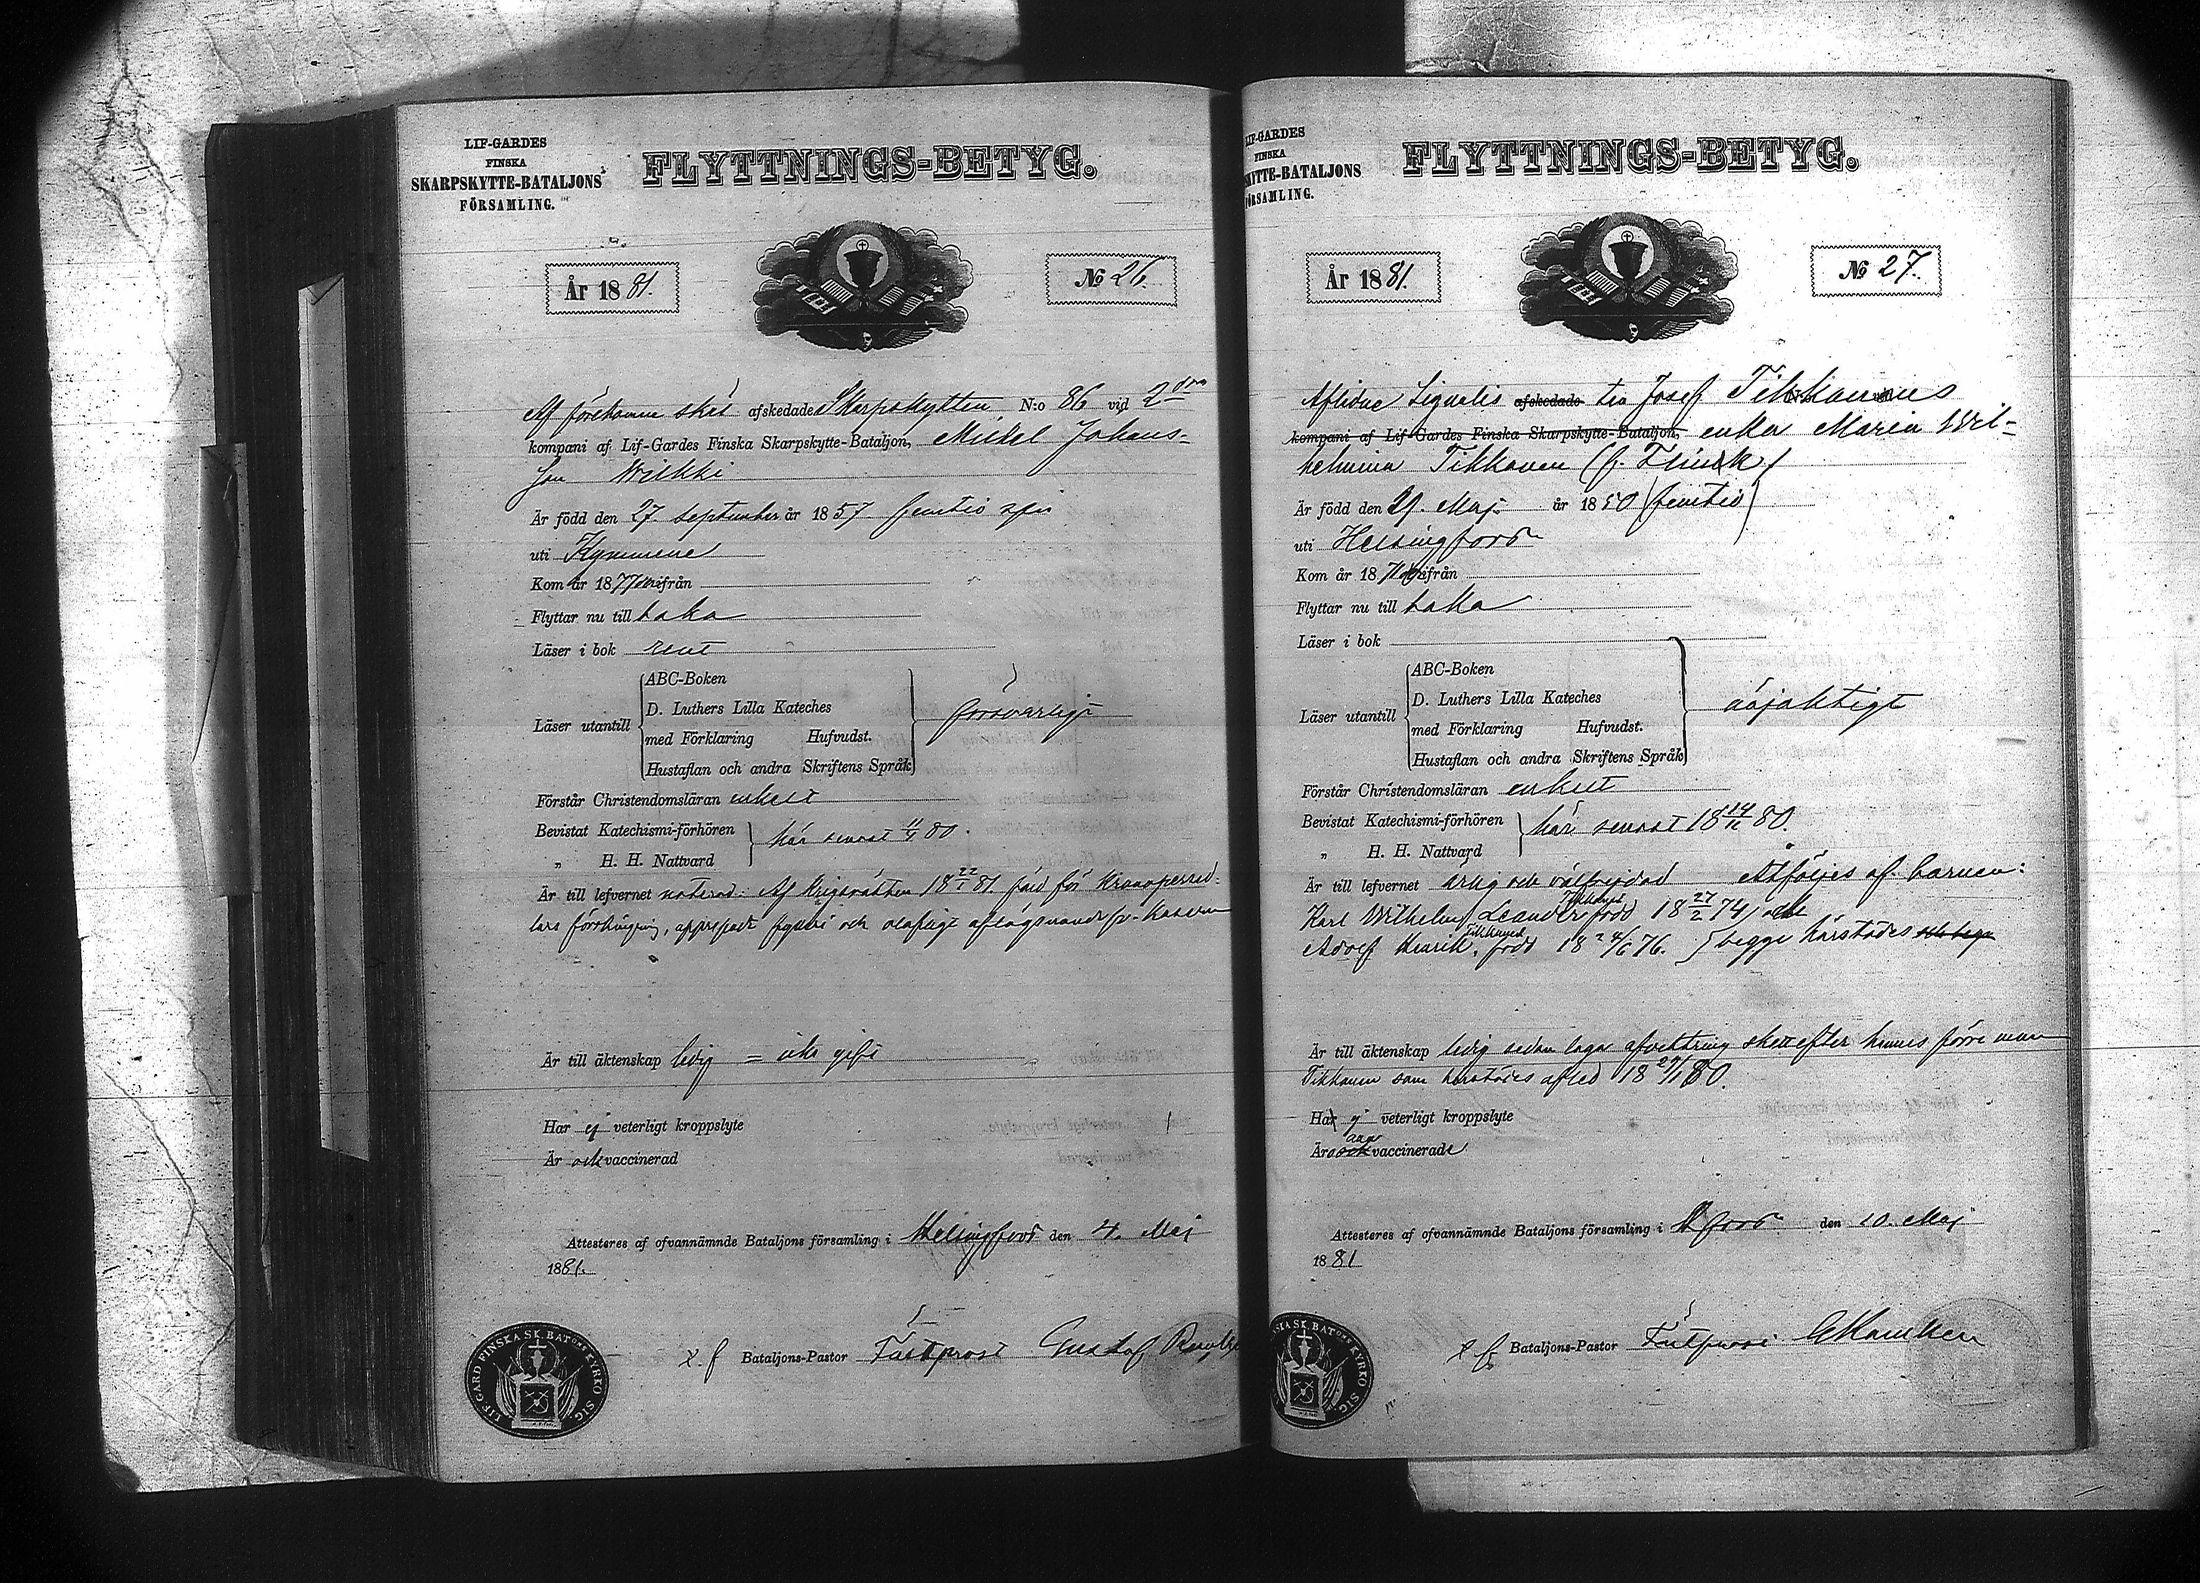 LIF-GARDES
FINSKA
SKARPSKYTTE-BATALJONS
FÖRSAMLING.
FLYTTNINGS-BETYG.
År 1881.
№ 26
Af förekomne skäl afskedade Skarpskytten N:o 86 vid 2dra
kompani af Lif-Gardes Finska Skarpskytte-Bataljon, Mickel Johans-
son Wilkki
Är född den 27. September år 1857 femtio sju
uti Kymmene
Kom år 1877 från
Flyttar nu till baka
Läser i bok rent
Läser utantill
ABC-Boken
D. Luthers Lilla Kateches
med Förklaring Hufvudst.
Hustaflan och andra Skriftens Språk
försvarligt
Förstår Christendomsläran enkelt
Bevistat Katechismi-förhören
„ H. H. Nattvard
här senast 80.
Är till lefvernet noterad: Af Krigsrätten 18 22/1 81 för Kronopersed-
lars och olofligt
Är till äktenskap ledig = icke gift
Har ej veterligt kroppslyte
Är ock vaccinerad
Attesteras af ofvannämnde Bataljons församling i Helsingfors den 4. Maj
1881.
v. f. Bataljons-Pastor Fältprost Gustaf
LIF-GARD FINSKA SK. BAT:ONS KYRKO SIG.
LIF-GARDES
FINSKA
SKYTTE-BATALJONS
FÖRSAMLING.
FLYTTNINGS-BETYG.
År 1881.
№ 27.
Aflidne Signalis afskedade ten Josef Tikkanens
kompani af Lif-Gardes Finska Skarpskytte-Bataljon, enka Maria Wil-
helmina Tikkanen (f. Flinck)
Är född den 29. Maj år 1850 (femtio)
uti Helsingfors
Kom år 187 från
Flyttar nu till baka
Läser i bok
Läser utantill
ABC-Boken
D. Luthers Lilla Kateches
med Förklaring Hufvudst.
Hustaflan och andra Skriftens Språk
Förstår Christendomsläran enkelt
Bevistat Katechismi-förhören
„ H. H. Nattvard
här senast 18 14/11 80.
Är till lefvernet ärlig och välfrejdad Åtföljes af barnen:
Karl Wilhelm Leander Tikkanen född 18 27/2 74, och
Adolf Henrik Tikkanen, född 18 24/6 76. } begge härstädes och
Är till äktenskap ledig sedan laga afvittring skett efter hennes förre man
Tikkanen som härstädes afled 18 29/1 80.
Har ej veterligt kroppslyte
Äro ock vaccinerade
Attesteras af ofvannämnde Bataljons församling i Hfors den 10. Maj
1881
v. f. Bataljons-Pastor Fältprost
FINSKA SK. BAT:ONS KYRKO SIG.